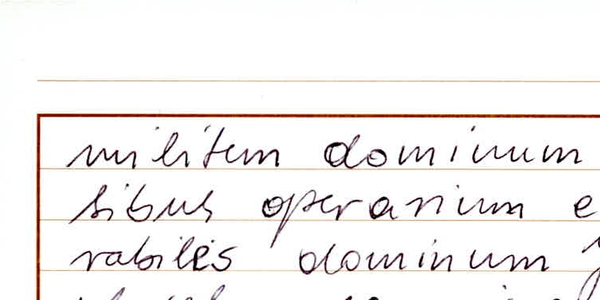 militem dominum
sibus operarium e
rabiles dominum